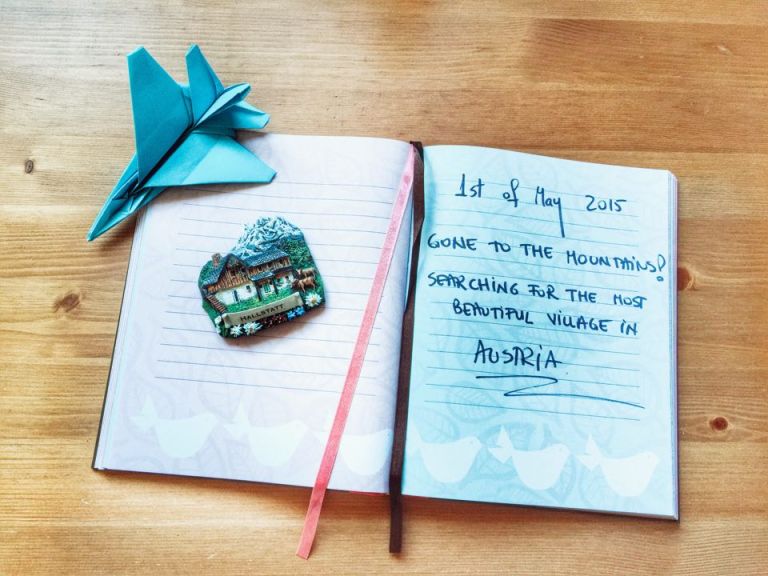 HALLSTATT
1st of May 2015
GONE TO THE MOUNTAINS!
SEARCHING FOR THE MOST
BEAUTIFUL VILLAGE IN
AUSTRIA